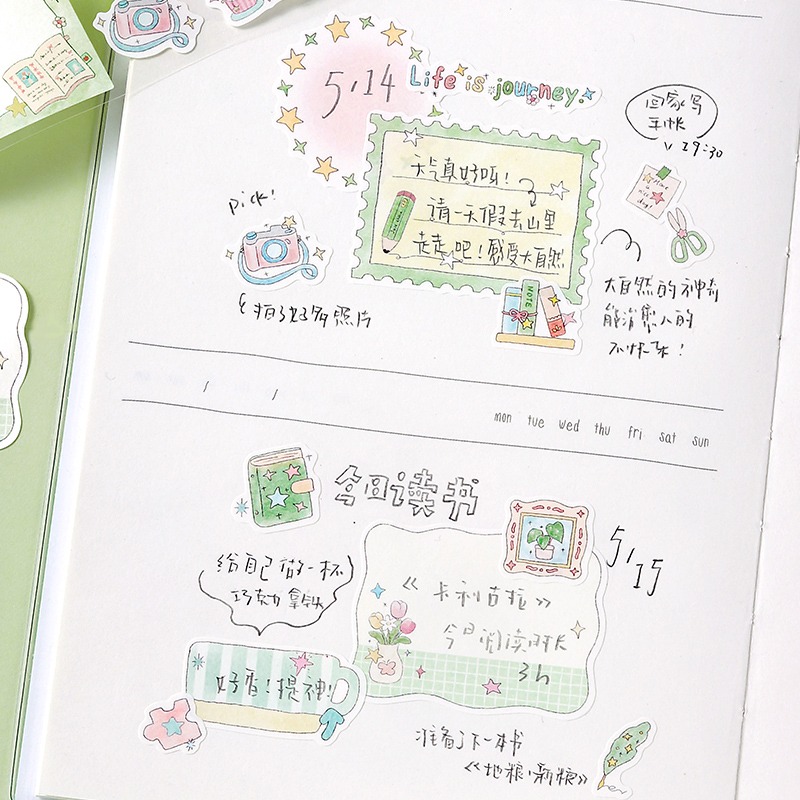 5.14
Life is journey.
回家写
手帐
19:30
天气真好呀!
请一天假去山里
走走吧!感受大自然
pick!
拍了好多照片
NOTE
大自然的神奇
能消愈人的
不快乐!
mon tue wed thu fri sat sun
今日读书
5.15
给自己做一杯
巧克力拿铁
《卡利古拉》
今日阅读时长
3h
好香!提神!
准备了下一本书
《地粮·新粮》